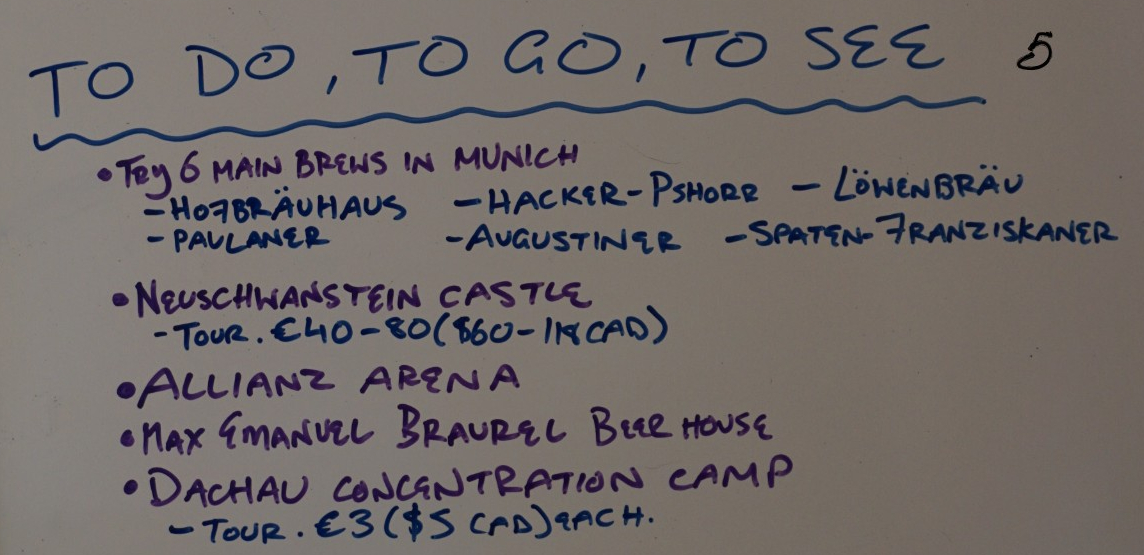 TO DO, TO GO, TO SEE 5
• TRY 6 MAIN BREWS IN MUNICH
- HOFBRÄUHAUS - HACKER-PSHORR - LÖWENBRÄU
- PAULANER - AUGUSTINER - SPATEN-FRANZISKANER
• NEUSCHWANSTEIN CASTLE
- TOUR. €40-80 ($60-118 CAD)
• ALLIANZ ARENA
• MAX EMANUEL BRAUREL BEER HOUSE
• DACHAU CONCENTRATION CAMP
- TOUR. €3 ($5 CAD) EACH.